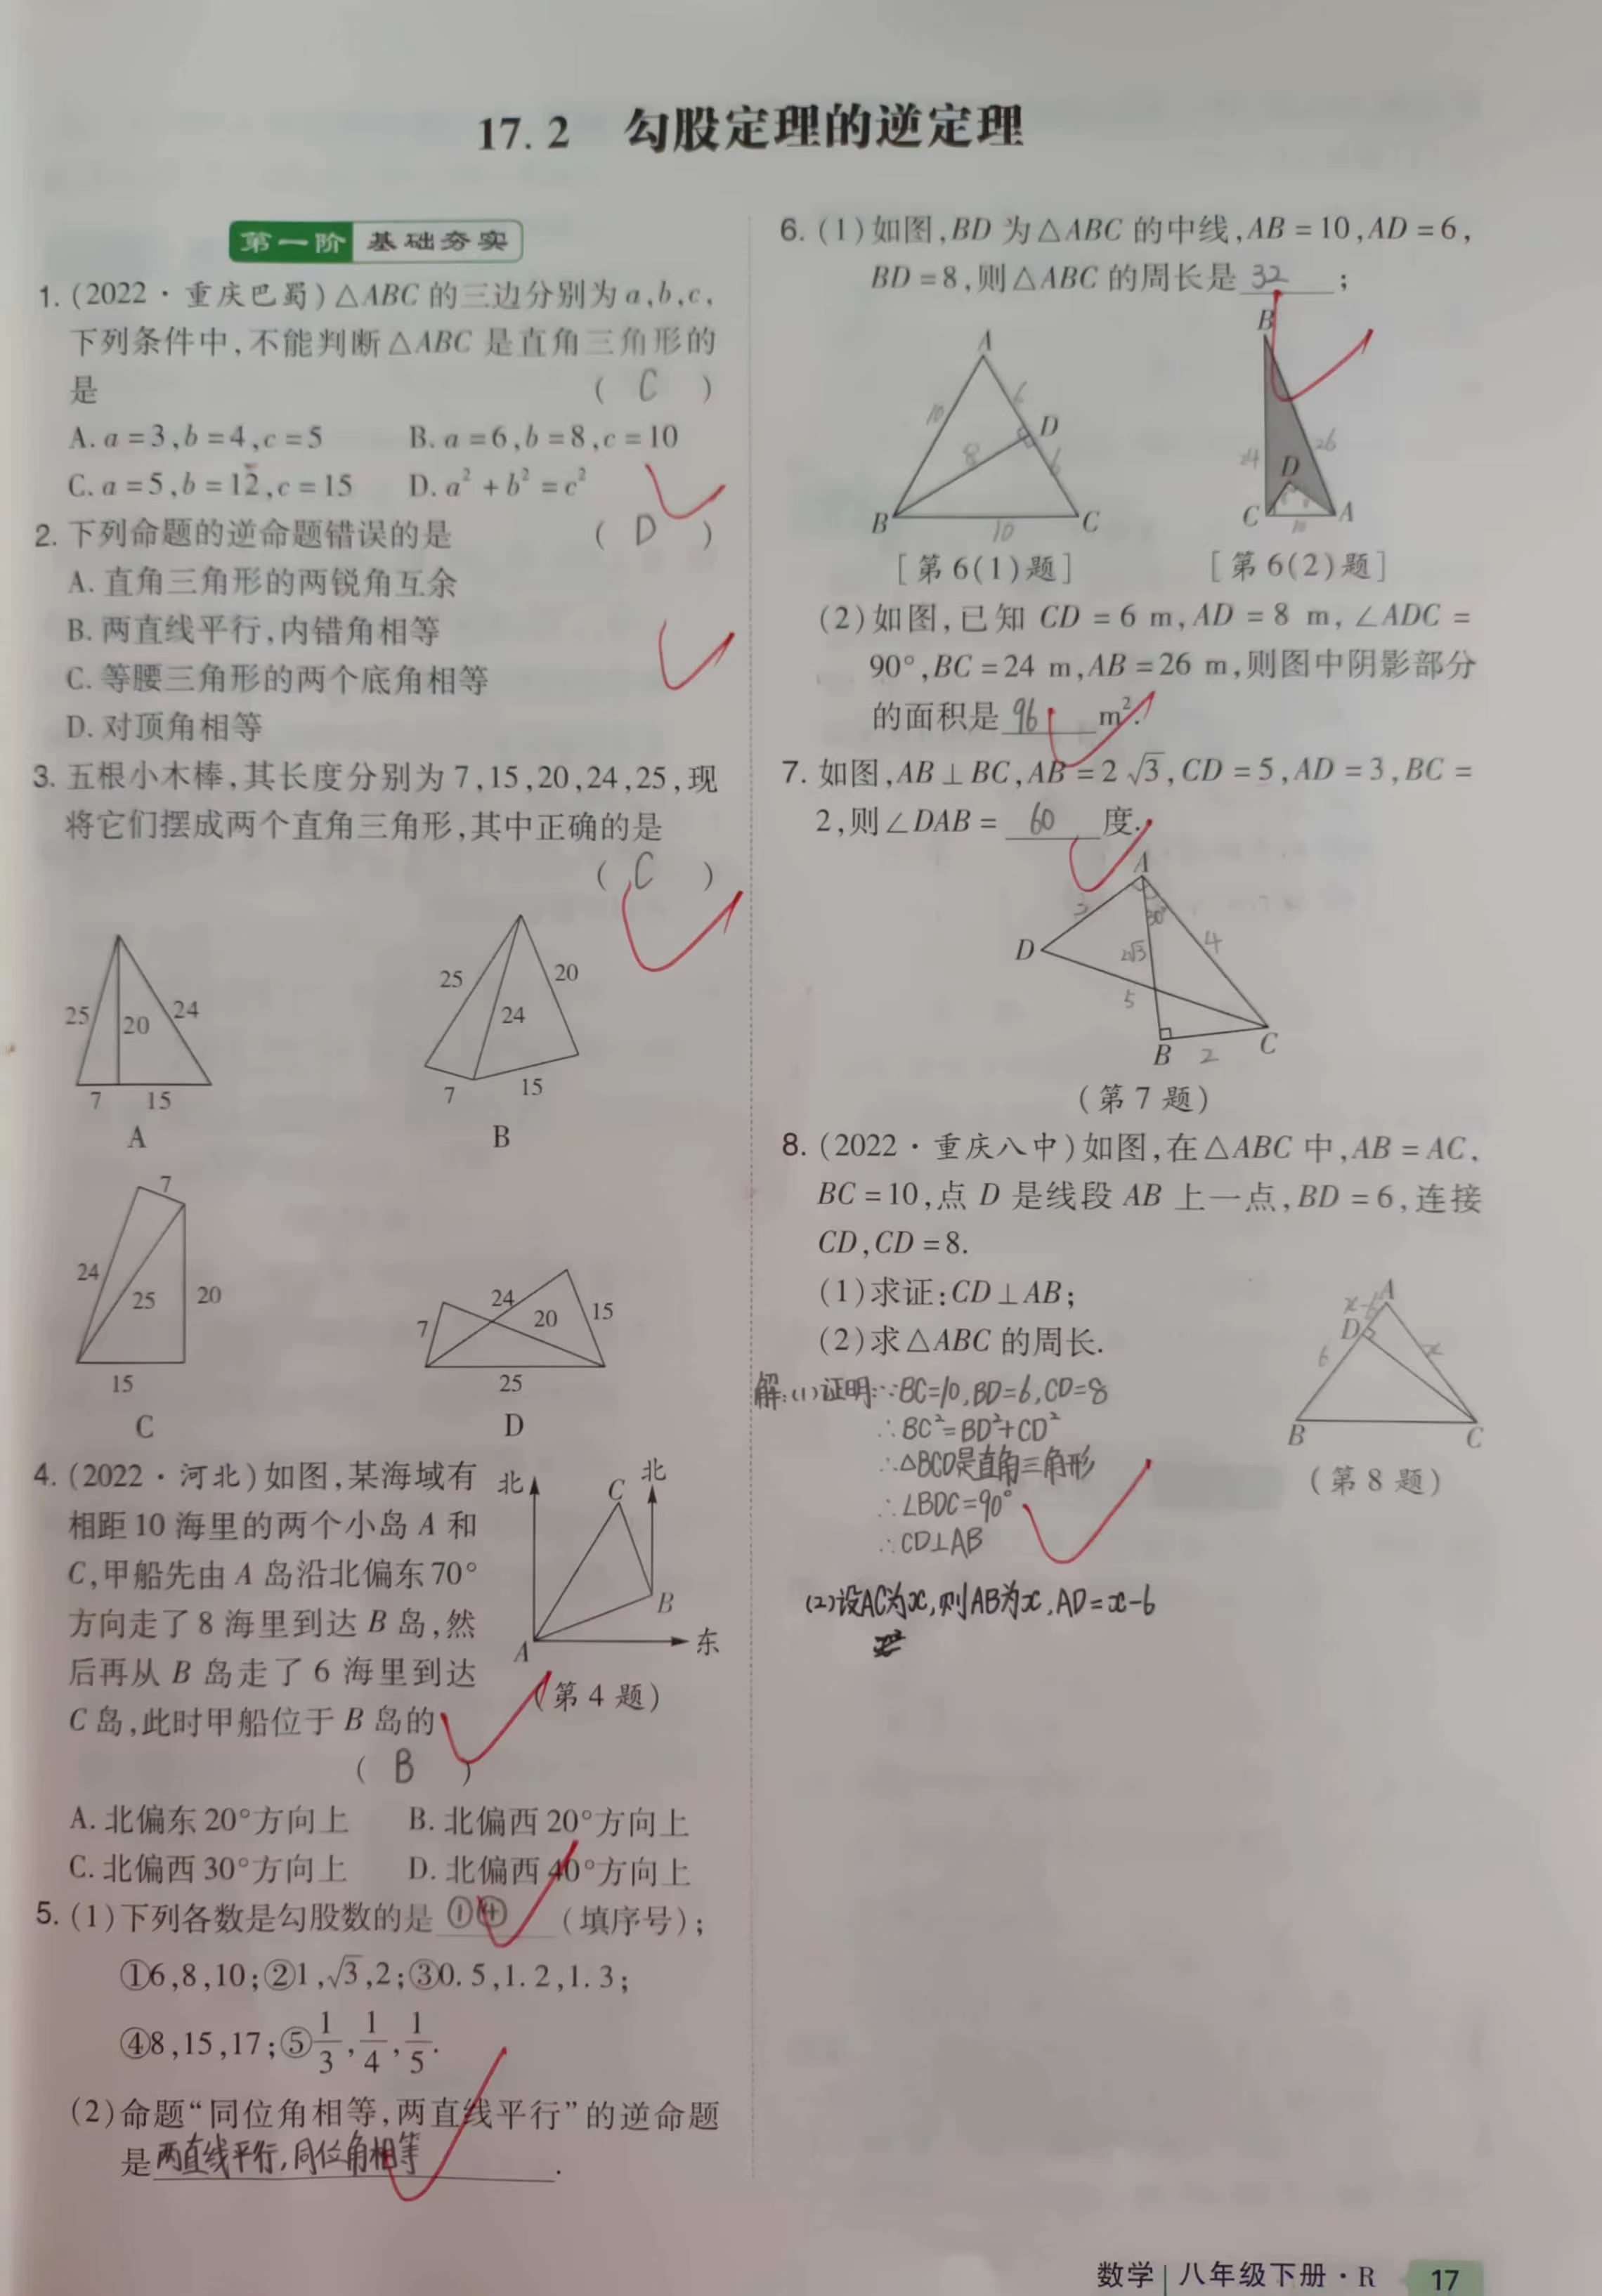 17.2 勾股定理的逆定理
第一阶 基础夯实
1. (2022·重庆巴蜀)△ABC 的三边分别为 a,b,c,
下列条件中,不能判断△ABC 是直角三角形的
是 ( C )
A. a=3,b=4,c=5 B. a=6,b=8,c=10
C. a=5,b=12,c=15 D. a²+b²=c²
2. 下列命题的逆命题错误的是 ( D )
A. 直角三角形的两锐角互余
B. 两直线平行,内错角相等
C. 等腰三角形的两个底角相等
D. 对顶角相等
3. 五根小木棒,其长度分别为 7,15,20,24,25,现
将它们摆成两个直角三角形,其中正确的是
( C )
25 20 24
7 15
A
25 20
24
7 15
B
7
24 25 20
15
C
24
7 20 15
25
D
4. (2022·河北)如图,某海域有
相距 10 海里的两个小岛 A 和
C,甲船先由 A 岛沿北偏东 70°
方向走了 8 海里到达 B 岛,然
后再从 B 岛走了 6 海里到达
C 岛,此时甲船位于 B 岛的
( B )
北 C 北
B
A 东
(第 4 题)
A. 北偏东 20°方向上 B. 北偏西 20°方向上
C. 北偏西 30°方向上 D. 北偏西 40°方向上
5. (1)下列各数是勾股数的是 ①④ (填序号);
①6,8,10;②1,√3,2;③0.5,1.2,1.3;
④8,15,17;⑤1/3,1/4,1/5.
(2)命题“同位角相等,两直线平行”的逆命题
是 两直线平行,同位角相等 .
6. (1)如图,BD 为△ABC 的中线,AB=10,AD=6,
BD=8,则△ABC 的周长是 32 ;
A
10 6
D
8 6
B 10 C
[第 6(1)题]
B
24 26
D
C 10 A
[第 6(2)题]
(2)如图,已知 CD=6 m,AD=8 m,∠ADC=
90°,BC=24 m,AB=26 m,则图中阴影部分
的面积是 96 m².
7. 如图,AB⊥BC,AB=2√3,CD=5,AD=3,BC=
2,则∠DAB= 60 度.
A
3 30°
D 2√3 4
5
B 2 C
(第 7 题)
8. (2022·重庆八中)如图,在△ABC 中,AB=AC,
BC=10,点 D 是线段 AB 上一点,BD=6,连接
CD,CD=8.
(1)求证:CD⊥AB;
(2)求△ABC 的周长.
x-6 A
D
6 x
B C
(第 8 题)
解:(1)证明:∵BC=10,BD=6,CD=8
∴BC²=BD²+CD²
∴△BCD是直角三角形
∴∠BDC=90°
∴CD⊥AB
(2)设AC为x,则AB为x,AD=x-6
数学 | 八年级下册·R 17